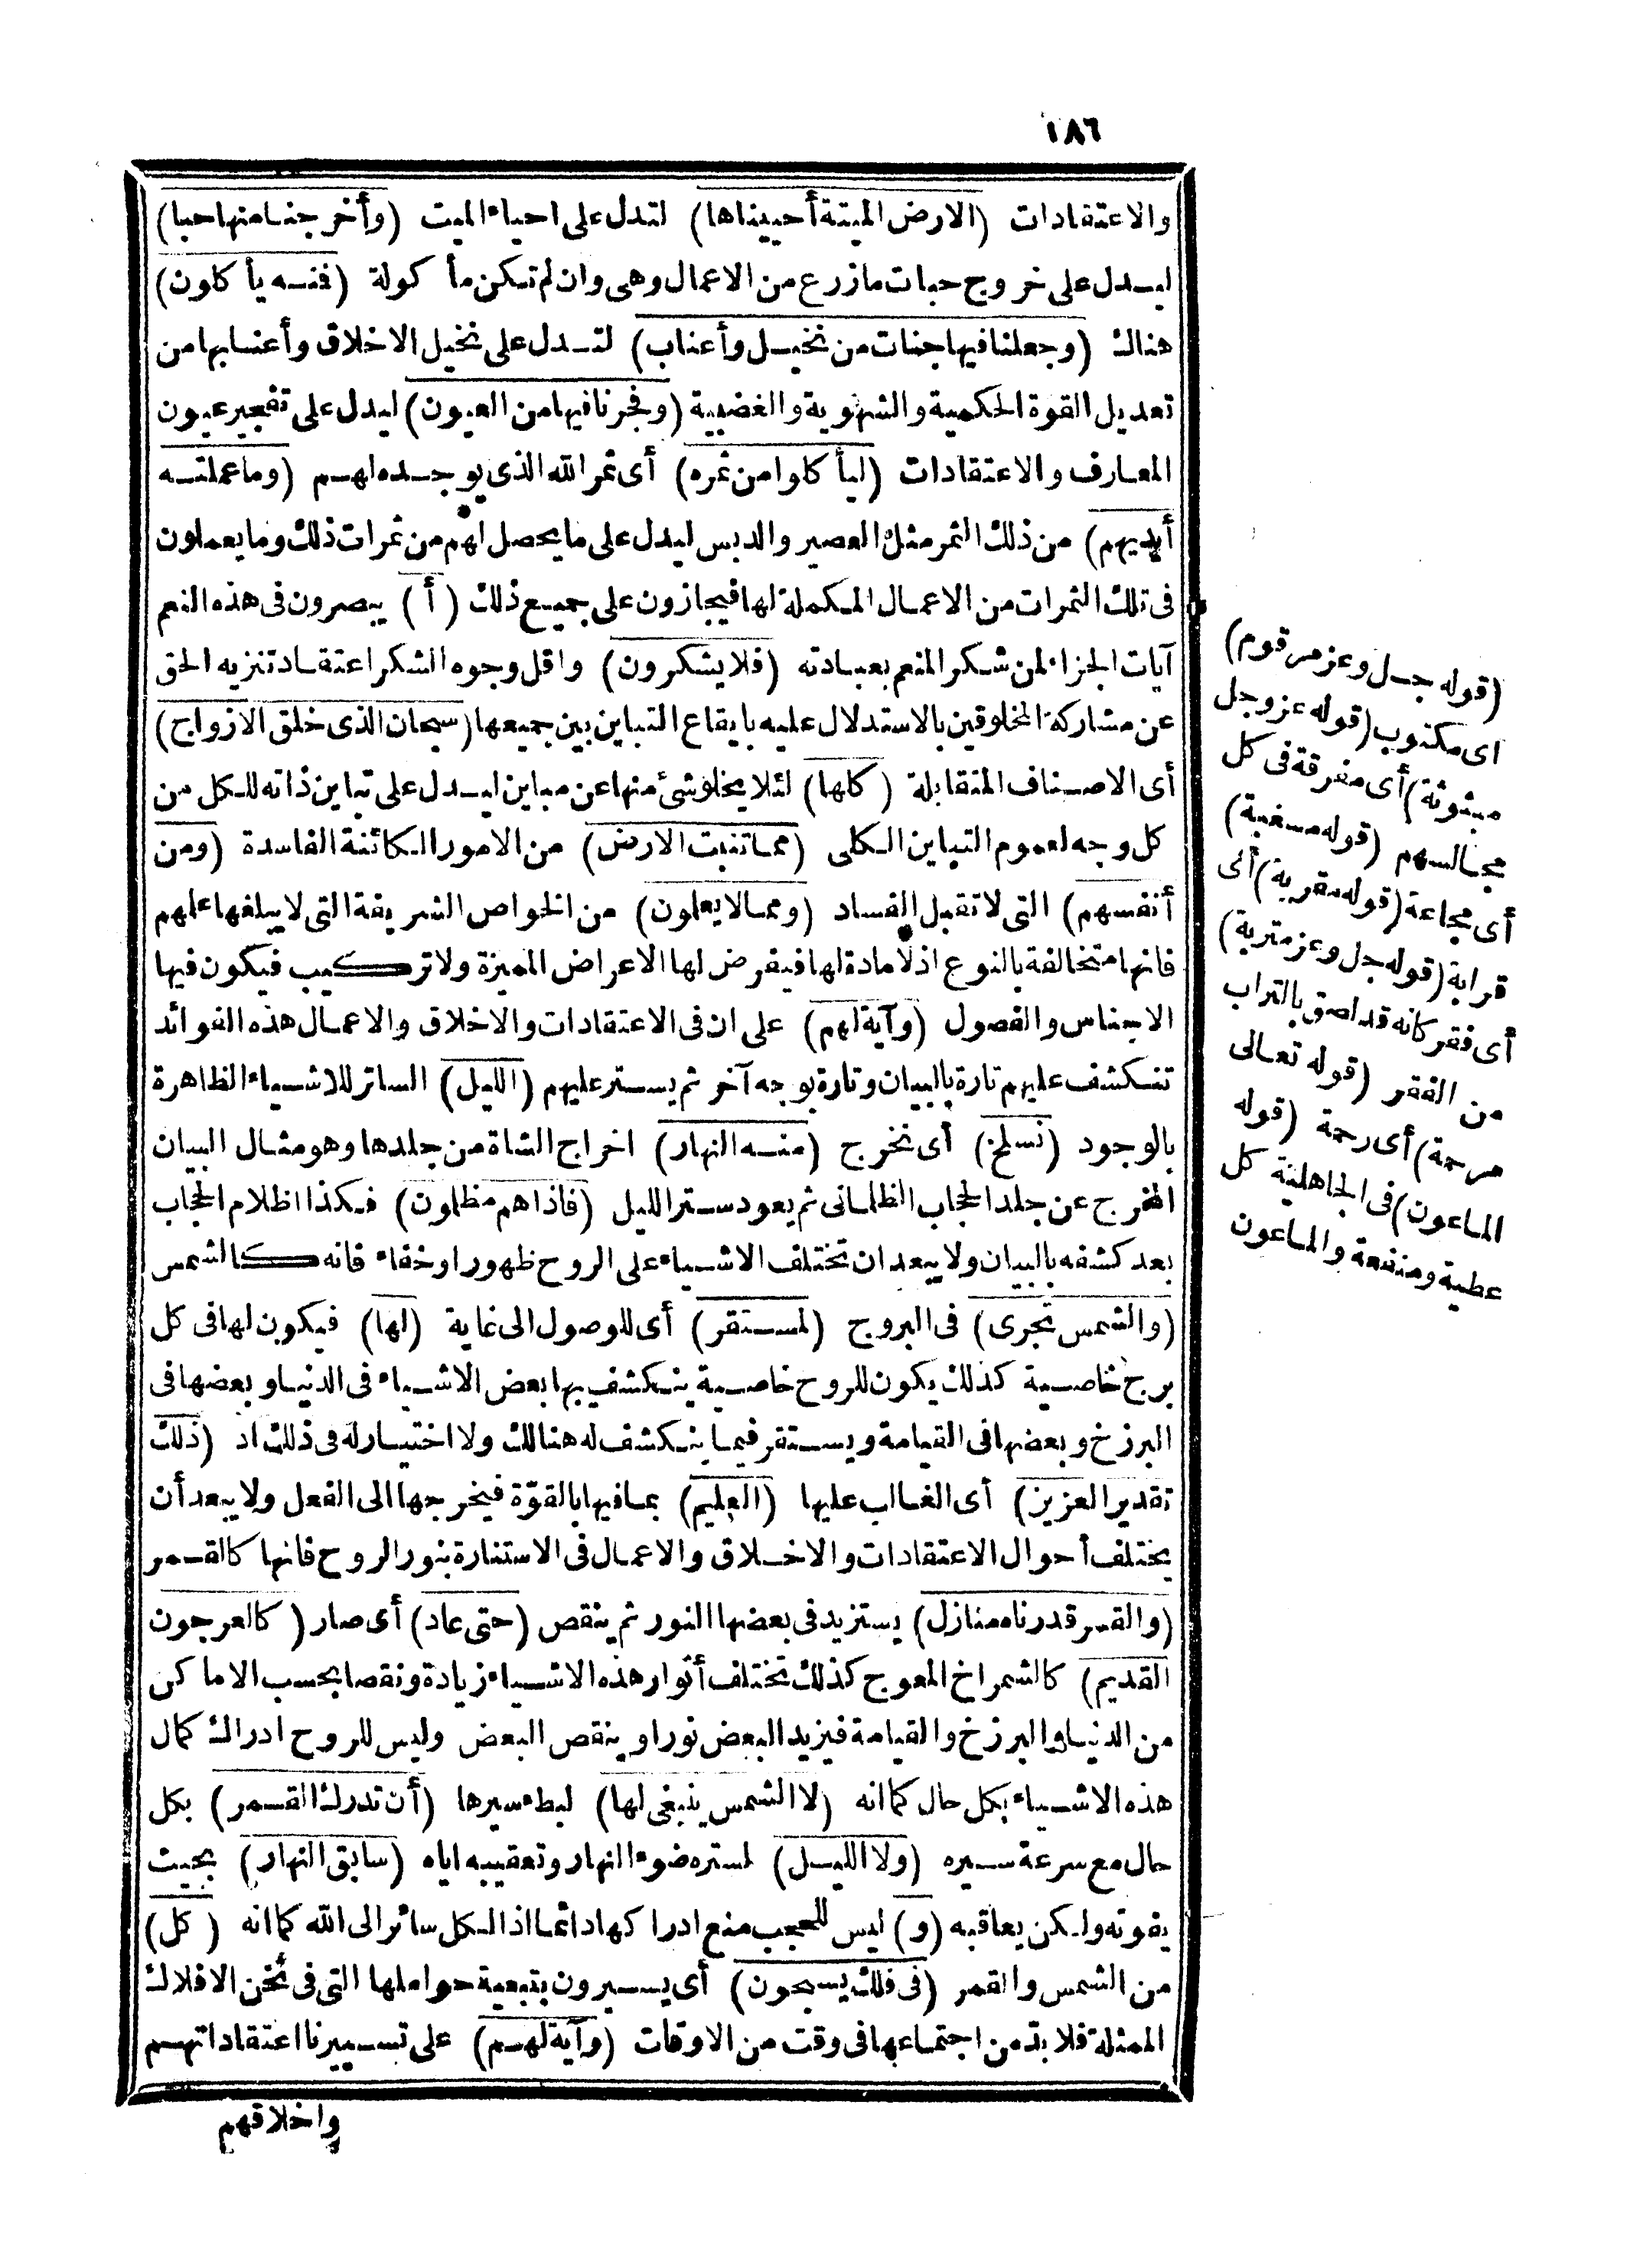 ١٨٦
والاعتقادات (الارض الميتة أحييناها) لتدل على احياء الميت (وأخرجنا منها حبا)
ليدل على خروج حبات ما زرع من الاعمال وهى وان لم تكن مأكولة (فنه يأكلون)
هناك (وجعلنا فيها جنات من نخيل وأعناب) لتدل على نخيل الاخلاق وأعنابها من
تعديل القوة الحكمية والشهوية والغضبية (وفجرنا فيها من العيون) ليدل على تفجير عيون
المعارف والاعتقادات (ليأكلوا من ثمره) أى ثمر الله الذى يوجده لهم (وما عملته
أيديهم) من ذلك الثمر مثل العصير والدبس ليدل على ما يحصل لهم من ثمرات ذلك وما يعملون
فى تلك الثمرات من الاعمال المكملة لها فيجازون على جميع ذلك (أ) يبصرون فى هذه النعم
آيات الجزاء لمن شكر المنعم بعبادته (فلا يشكرون) واقل وجوه الشكر اعتقاد تنزيه الحق
عن مشاركة المخلوقين بالاستدلال عليه بايقاع التباين بين جميعها (سبحان الذى خلق الازواج)
أى الاصناف المتقابلة (كلها) لئلا يخلو شئ منها عن مباين ليدل على تباين ذاته للكل من
كل وجه لعموم التباين الكلى (مما تنبت الارض) من الامور الكائنة الفاسدة (ومن
أنفسهم) التى لا تقبل الفساد (ومما لا يعلمون) من الخواص الشريفة التى لا يبلغها علمهم
فانها متخالفة بالنوع اذ لا مادة لها فيفرض لها الاعراض المميزة ولا تركيب فيكون فيها
الاجناس والفصول (وآية لهم) على ان فى الاعتقادات والاخلاق والاعمال هذه الفوائد
تنكشف عليهم تارة بالبيان وتارة بوجه آخر ثم يستر عليهم (الليل) الساتر للاشياء الظاهرة
بالوجود (نسلخ) أى نخرج (منه النهار) اخراج الشاة من جلدها وهو مثال البيان
المخرج عن جلد الحجاب الظلمانى ثم يعود ستر الليل (فاذا هم مظلمون) فكذا اظلام الحجاب
بعد كشفه بالبيان ولا يبعد ان تختلف الاشياء على الروح ظهورا وخفاء فانه كالشمس
(والشمس تجرى) فى البروج (لمستقر) أى للوصول الى غاية (لها) فيكون لها فى كل
برج خاصية كذلك يكون للروح خاصية ينكشف بها بعض الاشياء فى الدنيا وبعضها فى
البرزخ وبعضها فى القيامة ويستقر فيما ينكشف له هنالك ولا اختيار له فى ذلك اذ (ذلك
تقدير العزيز) أى الغالب عليها (العليم) بما فيها بالقوّة فيخرجها الى الفعل ولا يبعد أن
يختلف أحوال الاعتقادات والاخلاق والاعمال فى الاستنارة بنور الروح فانها كالقمر
(والقمر قدرناه منازل) يستزيد فى بعضها النور ثم ينقص (حتى عاد) أى صار (كالعرجون
القديم) كالشمراخ المعوج كذلك تختلف أنوار هذه الاشياء زيادة ونقصا بحسب الاماكن
من الدنيا والبرزخ والقيامة فيزيد البعض نورا وينقص البعض وليس للروح ادراك كمال
هذه الاشياء بكل حال كما انه (لا الشمس ينبغى لها) لبطء سيرها (أن تدرك القمر) بكل
حال مع سرعة سيره (ولا الليل) لستره ضوء النهار وتعقيبه اياه (سابق النهار) بحيث
يفوته ولكن يعاقبه (و) ليس للحجب منع ادراكها دائما اذ الكل سائر الى الله كما انه (كل)
من الشمس والقمر (فى فلك يسبحون) أى يسيرون بتبعية حواملها التى فى ثخن الافلاك
الممثلة فلا بدّ من اجتماعها فى وقت من الاوقات (وآية لهم) على تسييرنا اعتقاداتهم
واخلاقهم
(قوله جل وعز مرقوم)
اى مكتوب (قوله عز وجل
مبثوثة) أى مفرقة فى كل
مجالسهم (قوله مسغبة)
أى مجاعة (قوله مقربة) أى
قرابة (قوله جل وعز متربة)
أى فقر كانه قد لصق بالتراب
من الفقر (قوله تعالى
مرحمة) أى رحمة (قوله
الماعون) فى الجاهلية كل
عطية ومنفعة والماعون